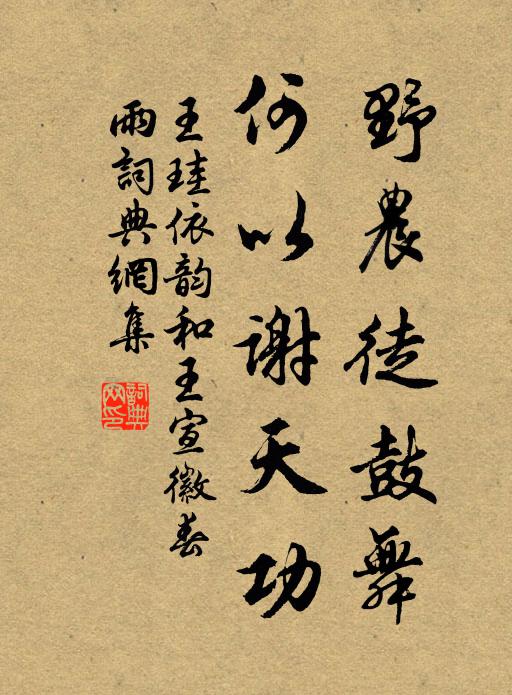 野農徒鼓舞
何以謝天功
王珪依韵和王宣徽春
雨詞典網集
詞典网印